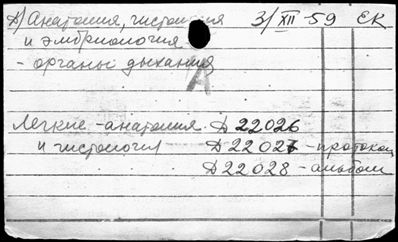 А) Анатомия, гистология 3/XII-59 ЕК
и эмбриология
- органы дыхания
А
Легкие - анатомия Д 22026
и гистология Д 22027 - протокол
Д 22028 - альбом